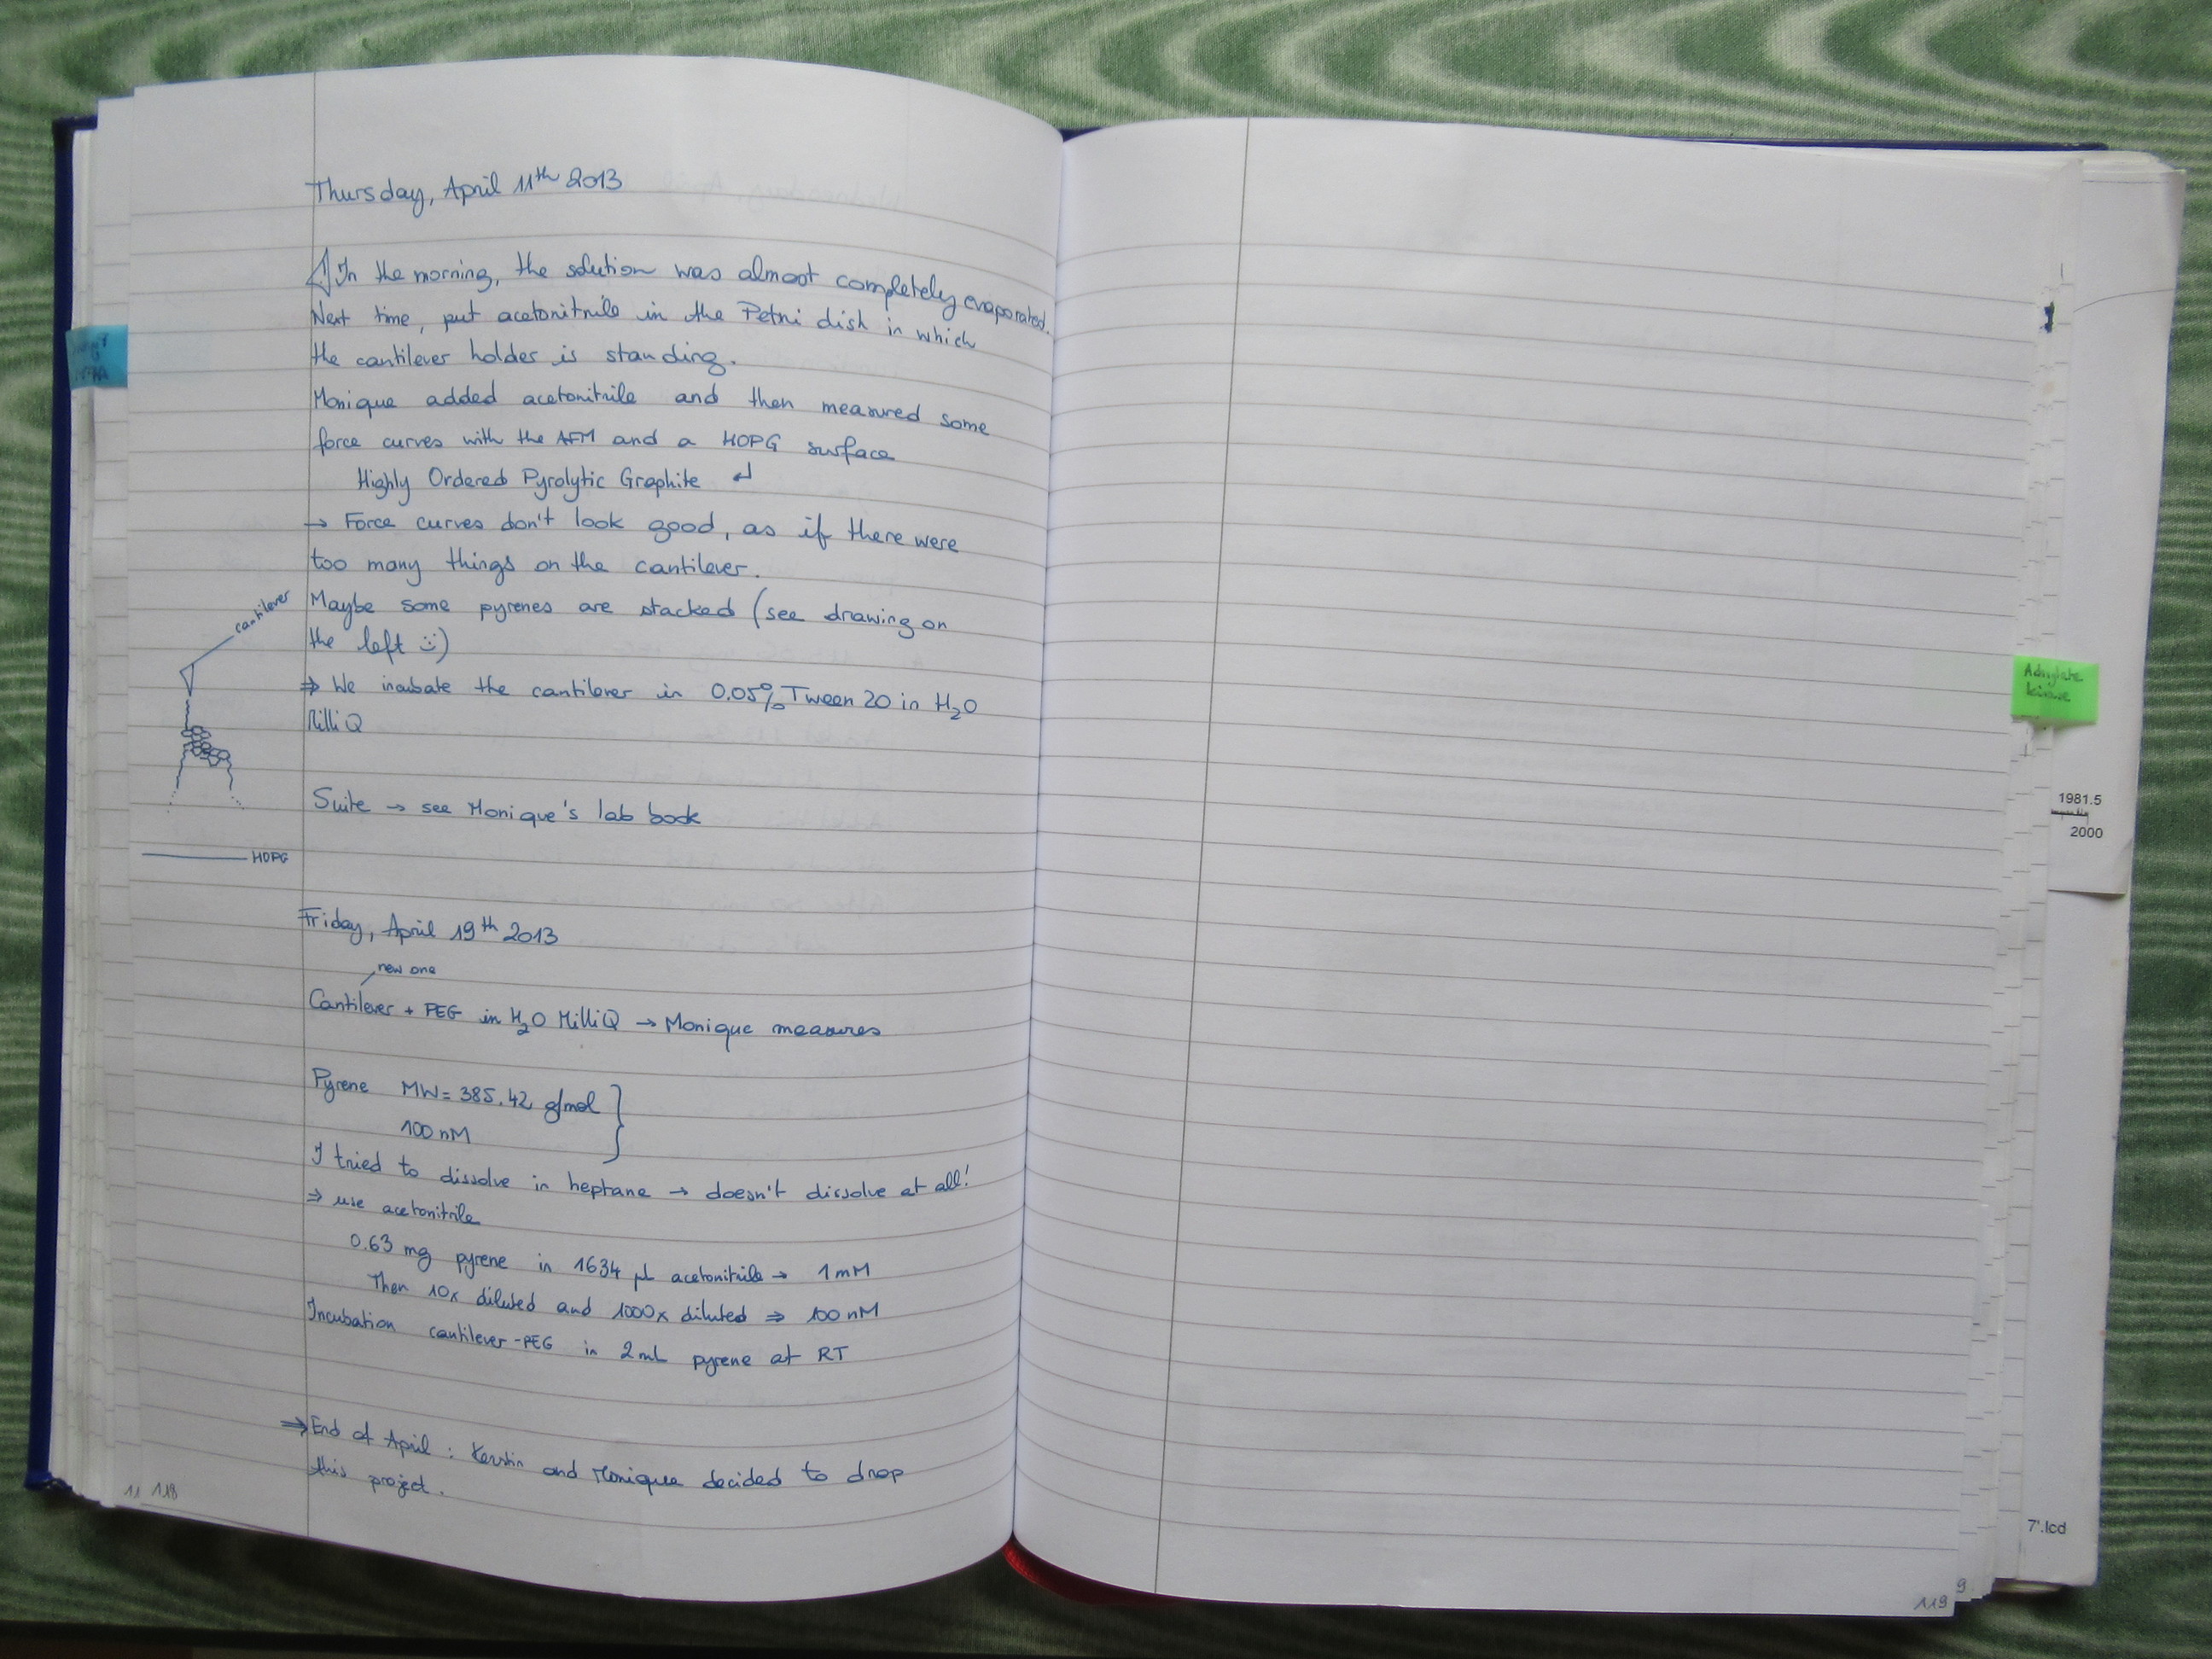 Thursday, April 11th 2013
In the morning, the solution was almost completely evaporated.
Next time, put acetonitrile in the Petri dish in which
the cantilever holder is standing.
Monique added acetonitrile and then measured some
force curves with the AFM and a HOPG surface
Highly Ordered Pyrolytic Graphite ↵
→ Force curves don't look good, as if there were
too many things on the cantilever.
cantilever
Maybe some pyrenes are stacked (see drawing on
the left :))
⇒ We incubate the cantilever in 0.05% Tween 20 in H2O
MilliQ
Suite → see Monique's lab book
HOPG
Friday, April 19th 2013
new one
Cantilever + PEG in H2O MilliQ → Monique measures
Pyrene MW = 385.42 g/mol
100 nM
I tried to dissolve in heptane → doesn't dissolve at all!
⇒ use acetonitrile
0.63 mg pyrene in 1634 µL acetonitrile → 1 mM
Then 10x diluted and 1000x diluted ⇒ 100 nM
Incubation cantilever-PEG in 2 mL pyrene at RT
⇒ End of April : Kerstin and Monique decided to drop
this project.
11 118
Adenylate
kinase
1981.5
2000
7'.lcd
9
119